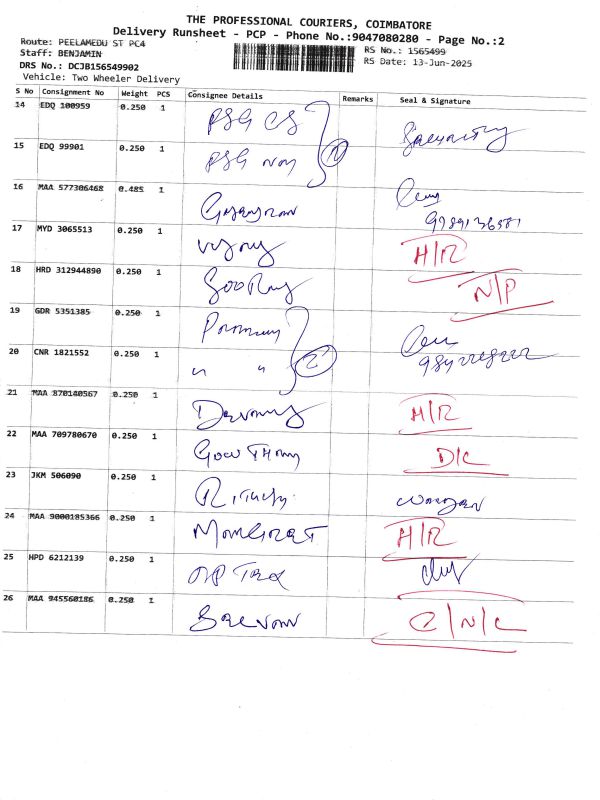 THE PROFESSIONAL COURIERS, COIMBATORE
Delivery Runsheet - PCP - Phone No.:9047080280 - Page No.:2
Route: PEELAMEDU ST PC4
RS No.: 1565499
Staff: BENJAMIN
RS Date: 13-Jun-2025
DRS No.: DCJB156549902
Vehicle: Two Wheeler Delivery
S No Consignment No Weight PCS Consignee Details Remarks Seal & Signature
14 EDQ 100959 0.250 1 PSG CS
15 EDQ 99901 0.250 1 PSG
16 MAA 577306468 0.485 1
17 MYD 3065513 0.250 1 H/R
18 HRD 312944890 0.250 1 N/P
19 GDR 5351385 0.250 1
20 CNR 1821552 0.250 1 " " 2
21 MAA 870140567 0.250 1 H/R
22 MAA 709780670 0.250 1 D/C
23 JKM 506090 0.250 1
24 MAA 9000185366 0.250 1 H/R
25 HPD 6212139 0.250 1
26 MAA 945560186 0.250 1 C/N/C